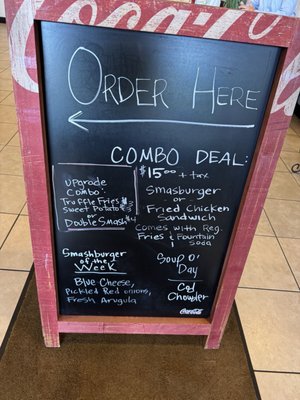 Coca-Cola
ORDER HERE
COMBO DEAL:
$15.00 + tax
SMASBURGER
or
FRIED CHICKEN
SANDWICH
COMES WITH REG.
FRIES & FOUNTAIN
SODA
UPGRADE
COMBO:
TRUFFLE FRIES
SWEET POTATO
or
DOUBLE SMASH
SMASHBURGER
OF THE
WEEK
BLUE CHEESE,
PICKLED RED ONIONS,
FRESH ARUGULA
SOUP O'
DAY
COD
CHOWDER
Coca-Cola